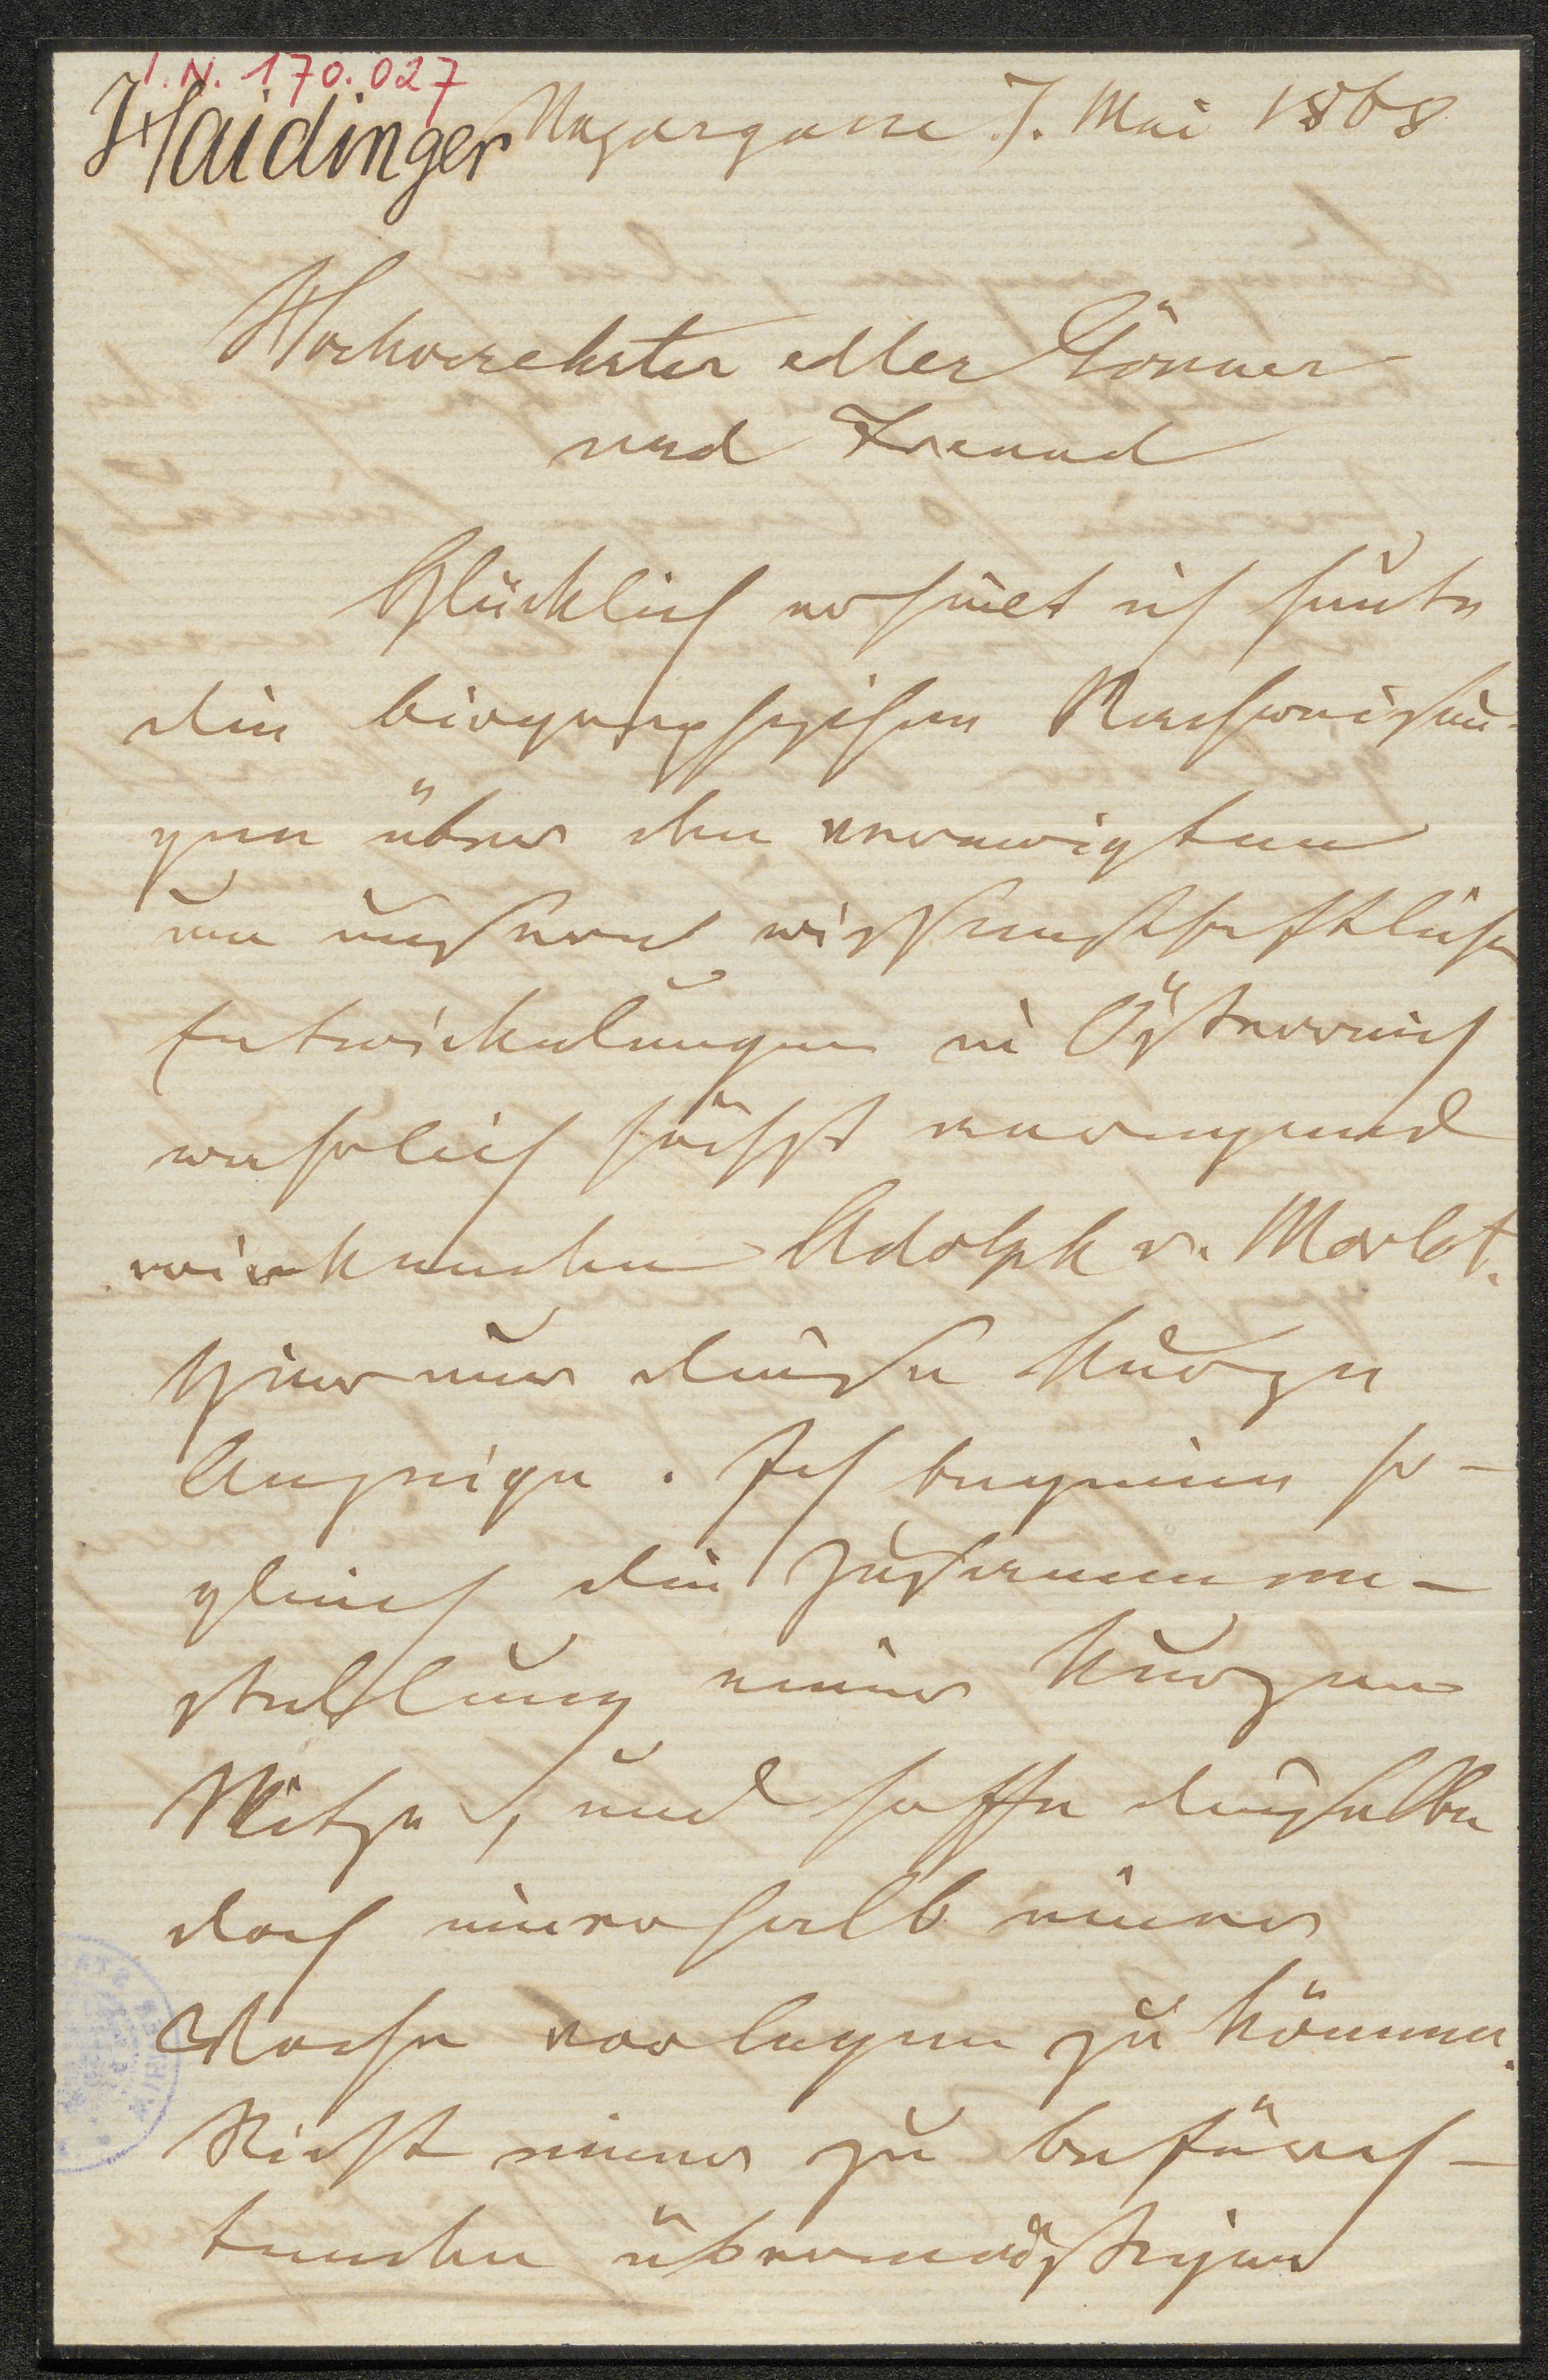 I.N. 170.027
Haidinger
Ungargasse 7. Mai 1868
Hochverehrter edler Gönner
und Freund
Glücklich erhielt ich heute
die biographischen Nachweisun-
gen über den verewigten
um unsere wissenschaftlichen
Entwickelungen in Österreich
wahrlich höchst anregend
wirkenden Adolph v. Morlot.
Hier nur diese kurze
Anzeige. Ich beginne so-
gleich die Zusammen-
stellung einer kurzen
Skizze, und hoffe dieselbe
doch innerhalb einer
Woche vorlegen zu können.
Nicht einer zu befürch-
tenden übermäßigen